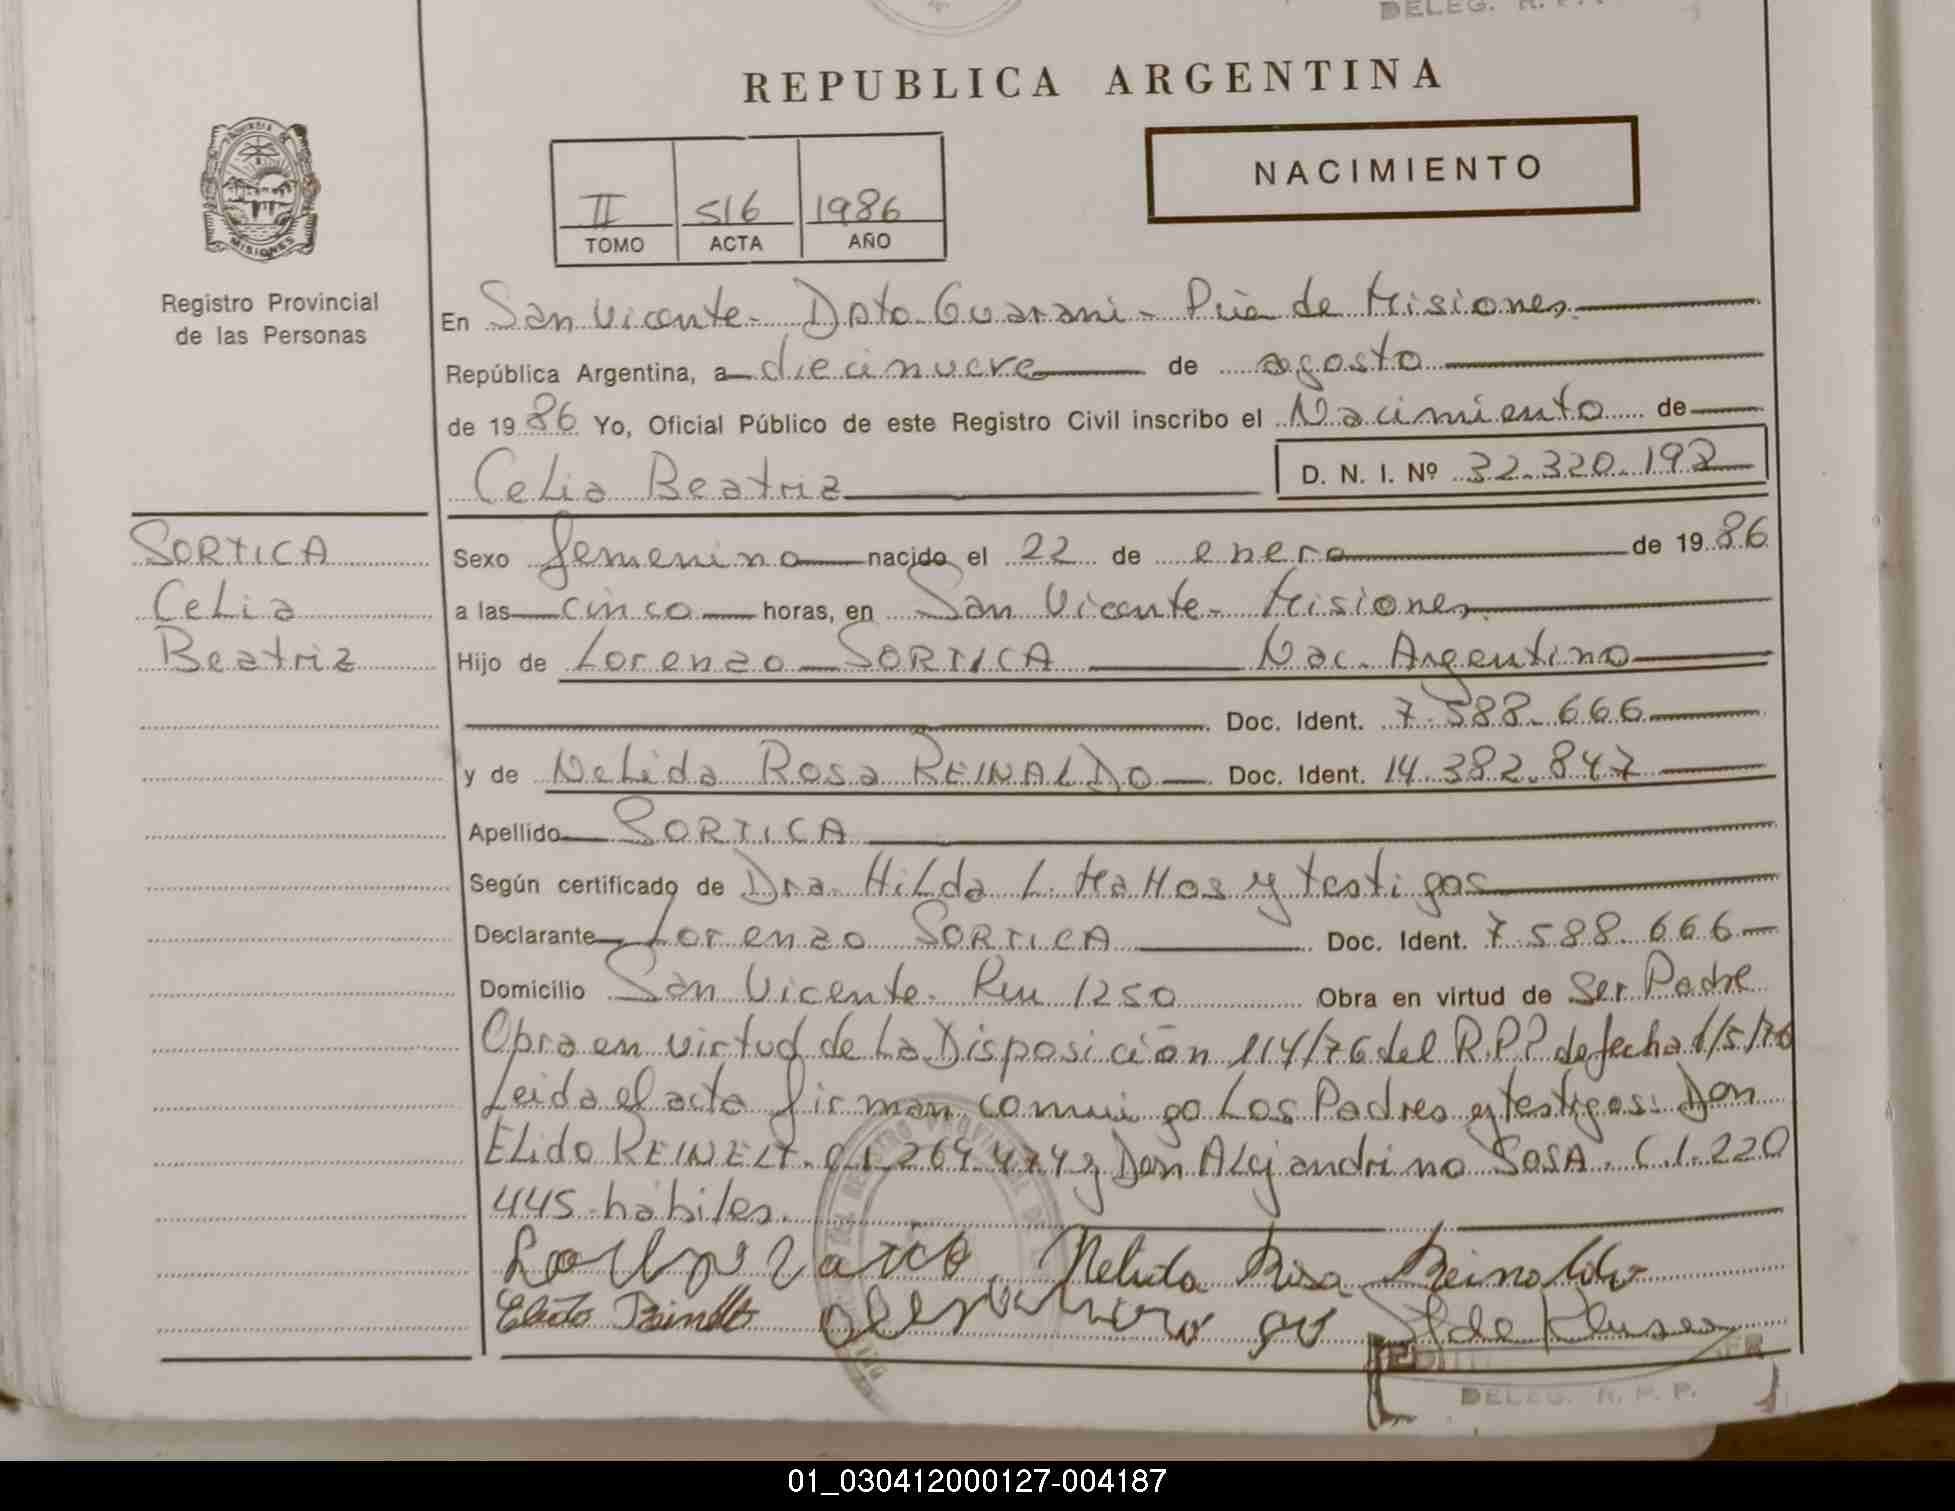 DELEG. R. P. P.
REPUBLICA ARGENTINA
PROVINCIA DE
MISIONES
Registro Provincial
de las Personas
NACIMIENTO
II 516 1986
TOMO ACTA AÑO
En San Vicente - Dpto Guarani - Pcia de Misiones
República Argentina, a diecinueve de agosto
de 1986 Yo, Oficial Público de este Registro Civil inscribo el Nacimiento de
Celia Beatriz D. N. I. Nº 32.320.192
SORTICA
Celia
Beatriz
Sexo femenino nacido el 22 de enero de 1986
a las cinco horas, en San Vicente - Misiones
Hijo de Lorenzo SORTICA Nac. Argentino
Doc. Ident. 7.588.666
y de Nelida Rosa REINALDO Doc. Ident. 14.382.847
Apellido SORTICA
Según certificado de Dra. Hilda L. Mattos y testigos
Declarante Lorenzo SORTICA Doc. Ident. 7.588.666
Domicilio San Vicente. Ru 1250 Obra en virtud de Ser Padre
Obra en virtud de La Disposición 114/76 del R.P.P de fecha 1/5/76
Leida el acta firman conmigo Los Padres y testigos: Don
Elido REINELT. C.I. 264.474 y Don Alejandrino SOSA. C.I. 220
445 hábiles.
Nelida Rosa Reinaldo
Elido
DELEG. R. P. P.
01_030412000127-004187